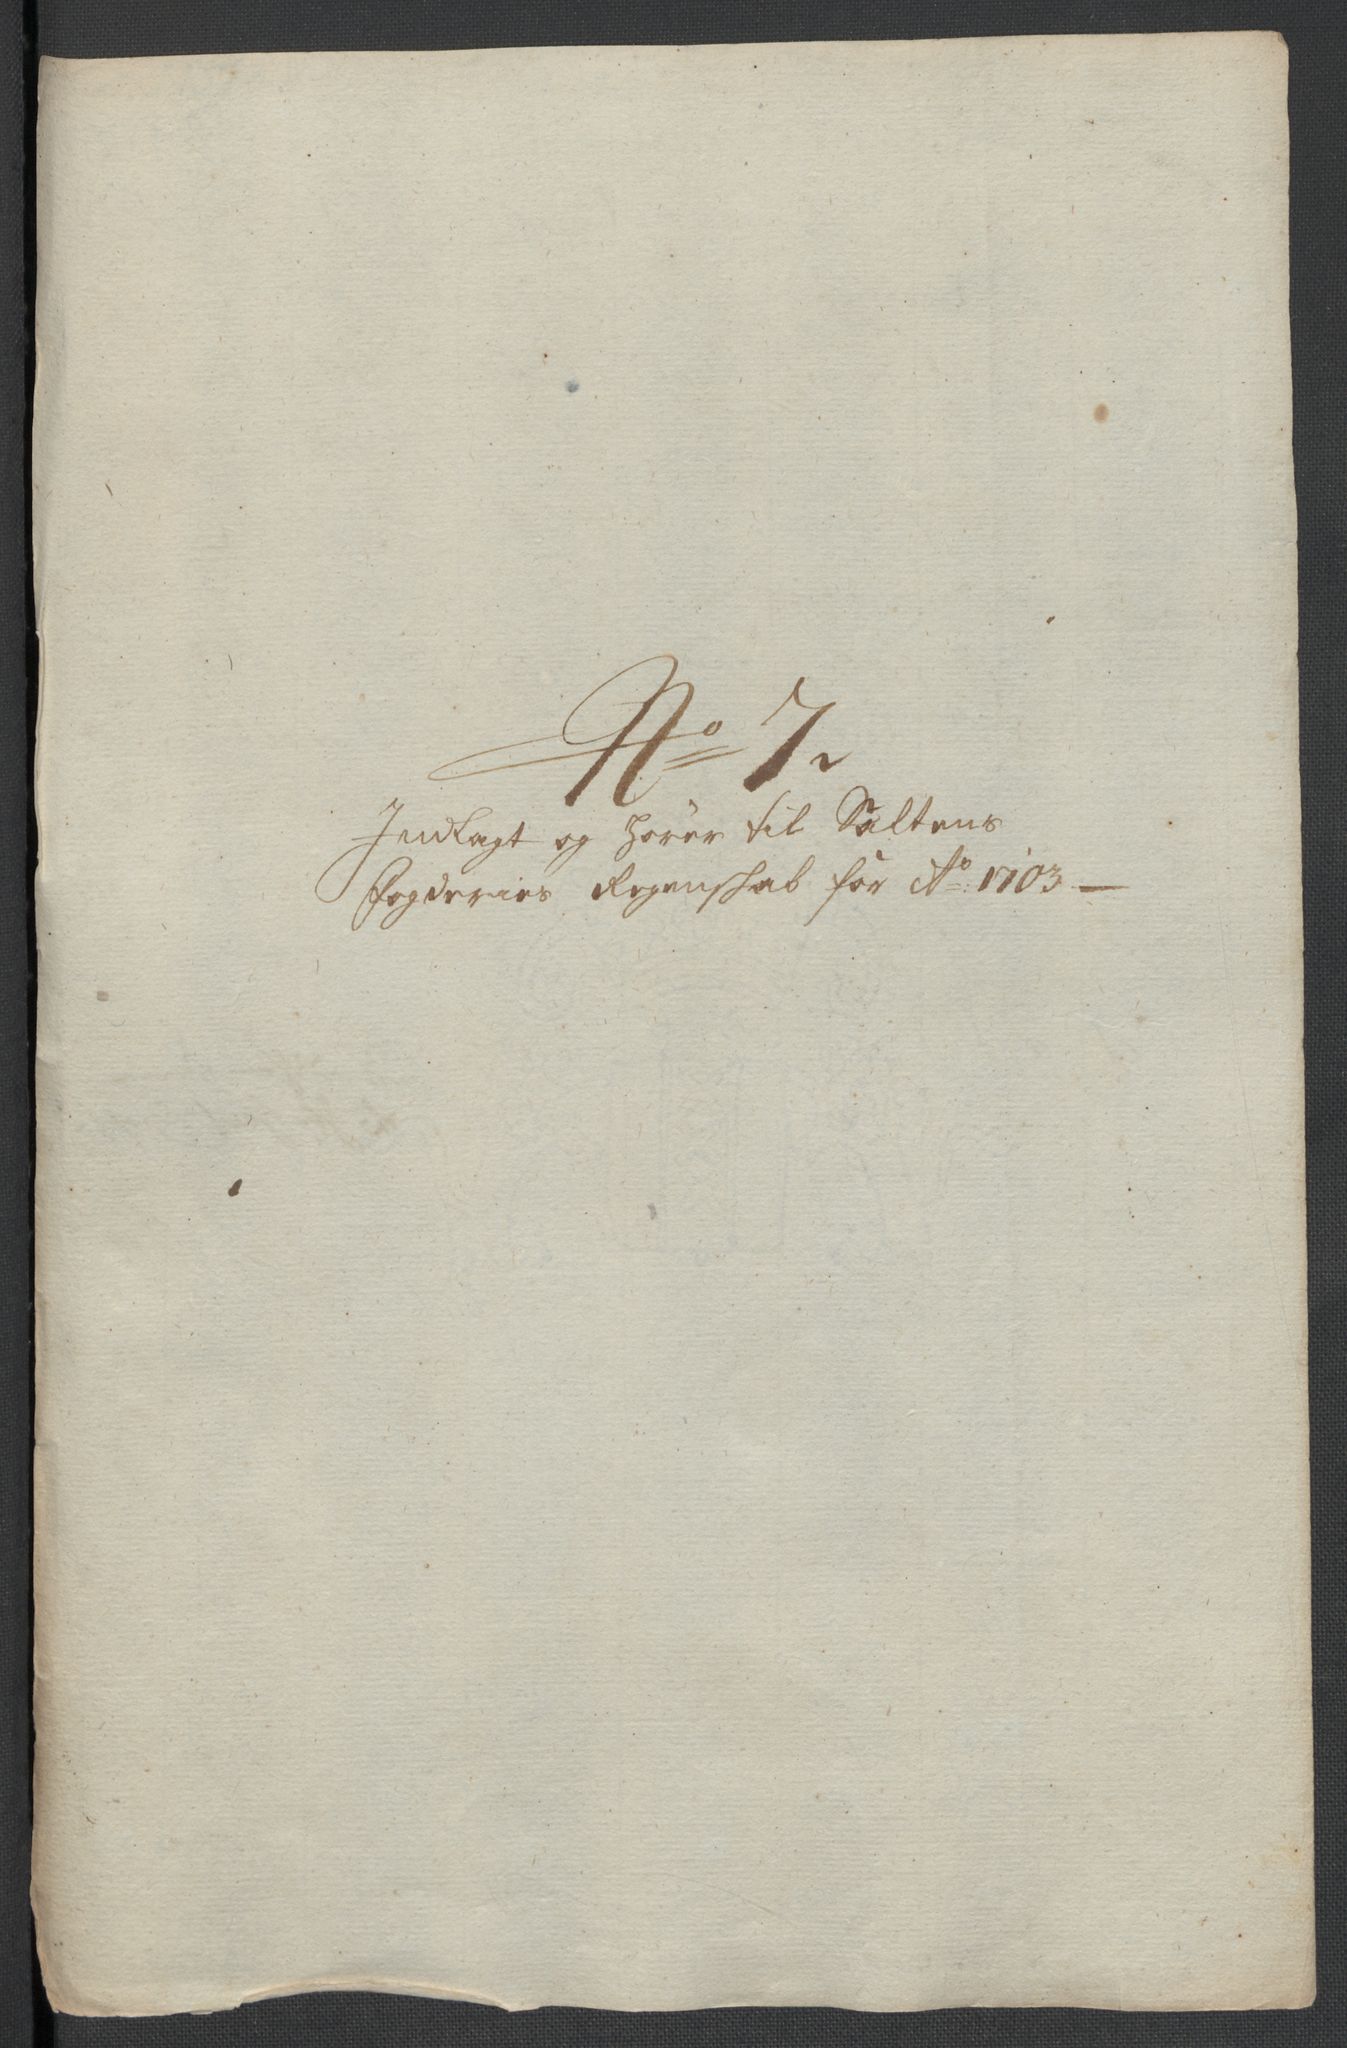 No 7.
Jndlagt og hører til Saltens
Fogderies Regenskab for Ao: 1703 —